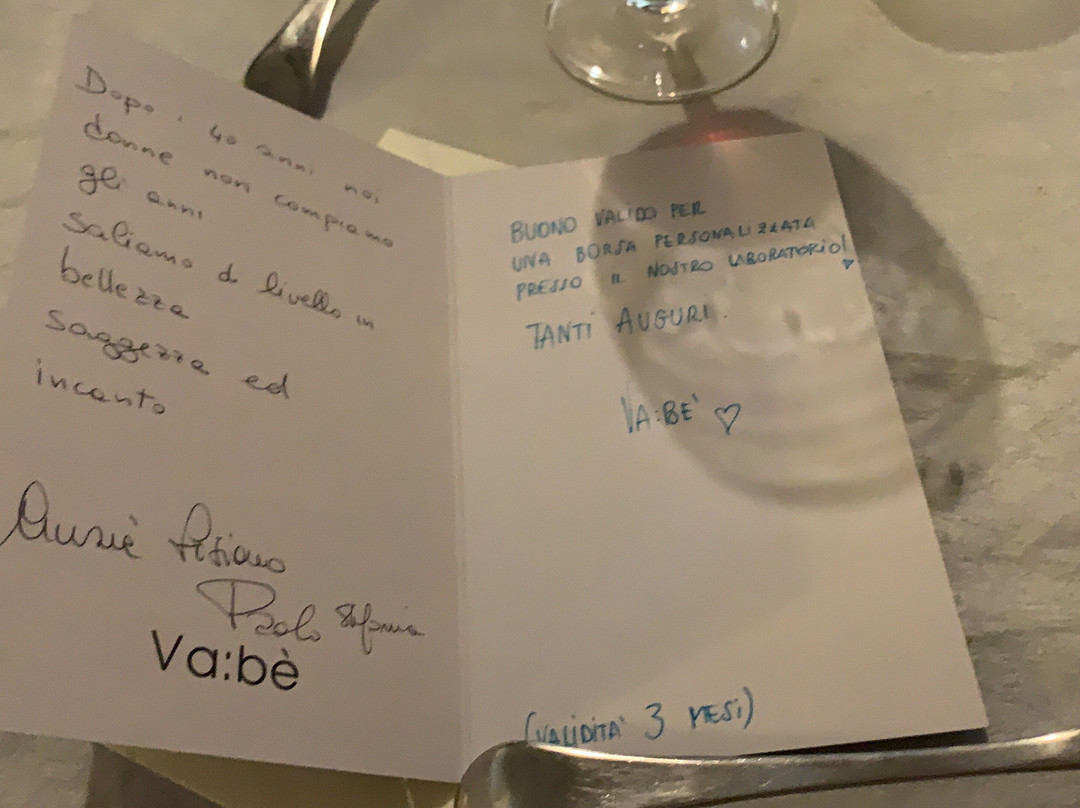 Dopo i 40 anni noi
donne non compiamo
gli anni
saliamo di livello in
bellezza
saggezza ed
incanto
Tiziano
Paolo Stefania
Va:bè
BUONO VALIDO PER
UNA BORSA PERSONALIZZATA
PRESSO IL NOSTRO LABORATORIO!
TANTI AUGURI.
VA:BE' ♡
(VALIDITA' 3 MESI)